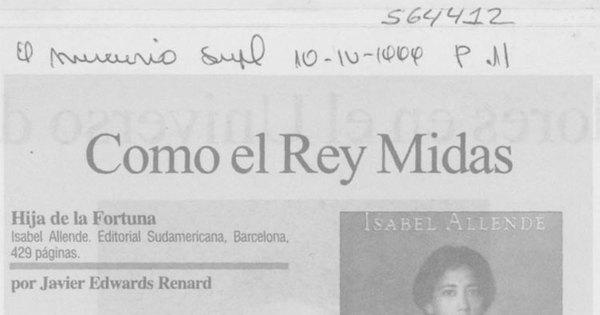 564412
El Mercurio Supl 10-IV-1999 P. 11
Como el Rey Midas
Hija de la Fortuna
Isabel Allende. Editorial Sudamericana, Barcelona,
429 páginas.
por Javier Edwards Renard
ISABEL ALLENDE